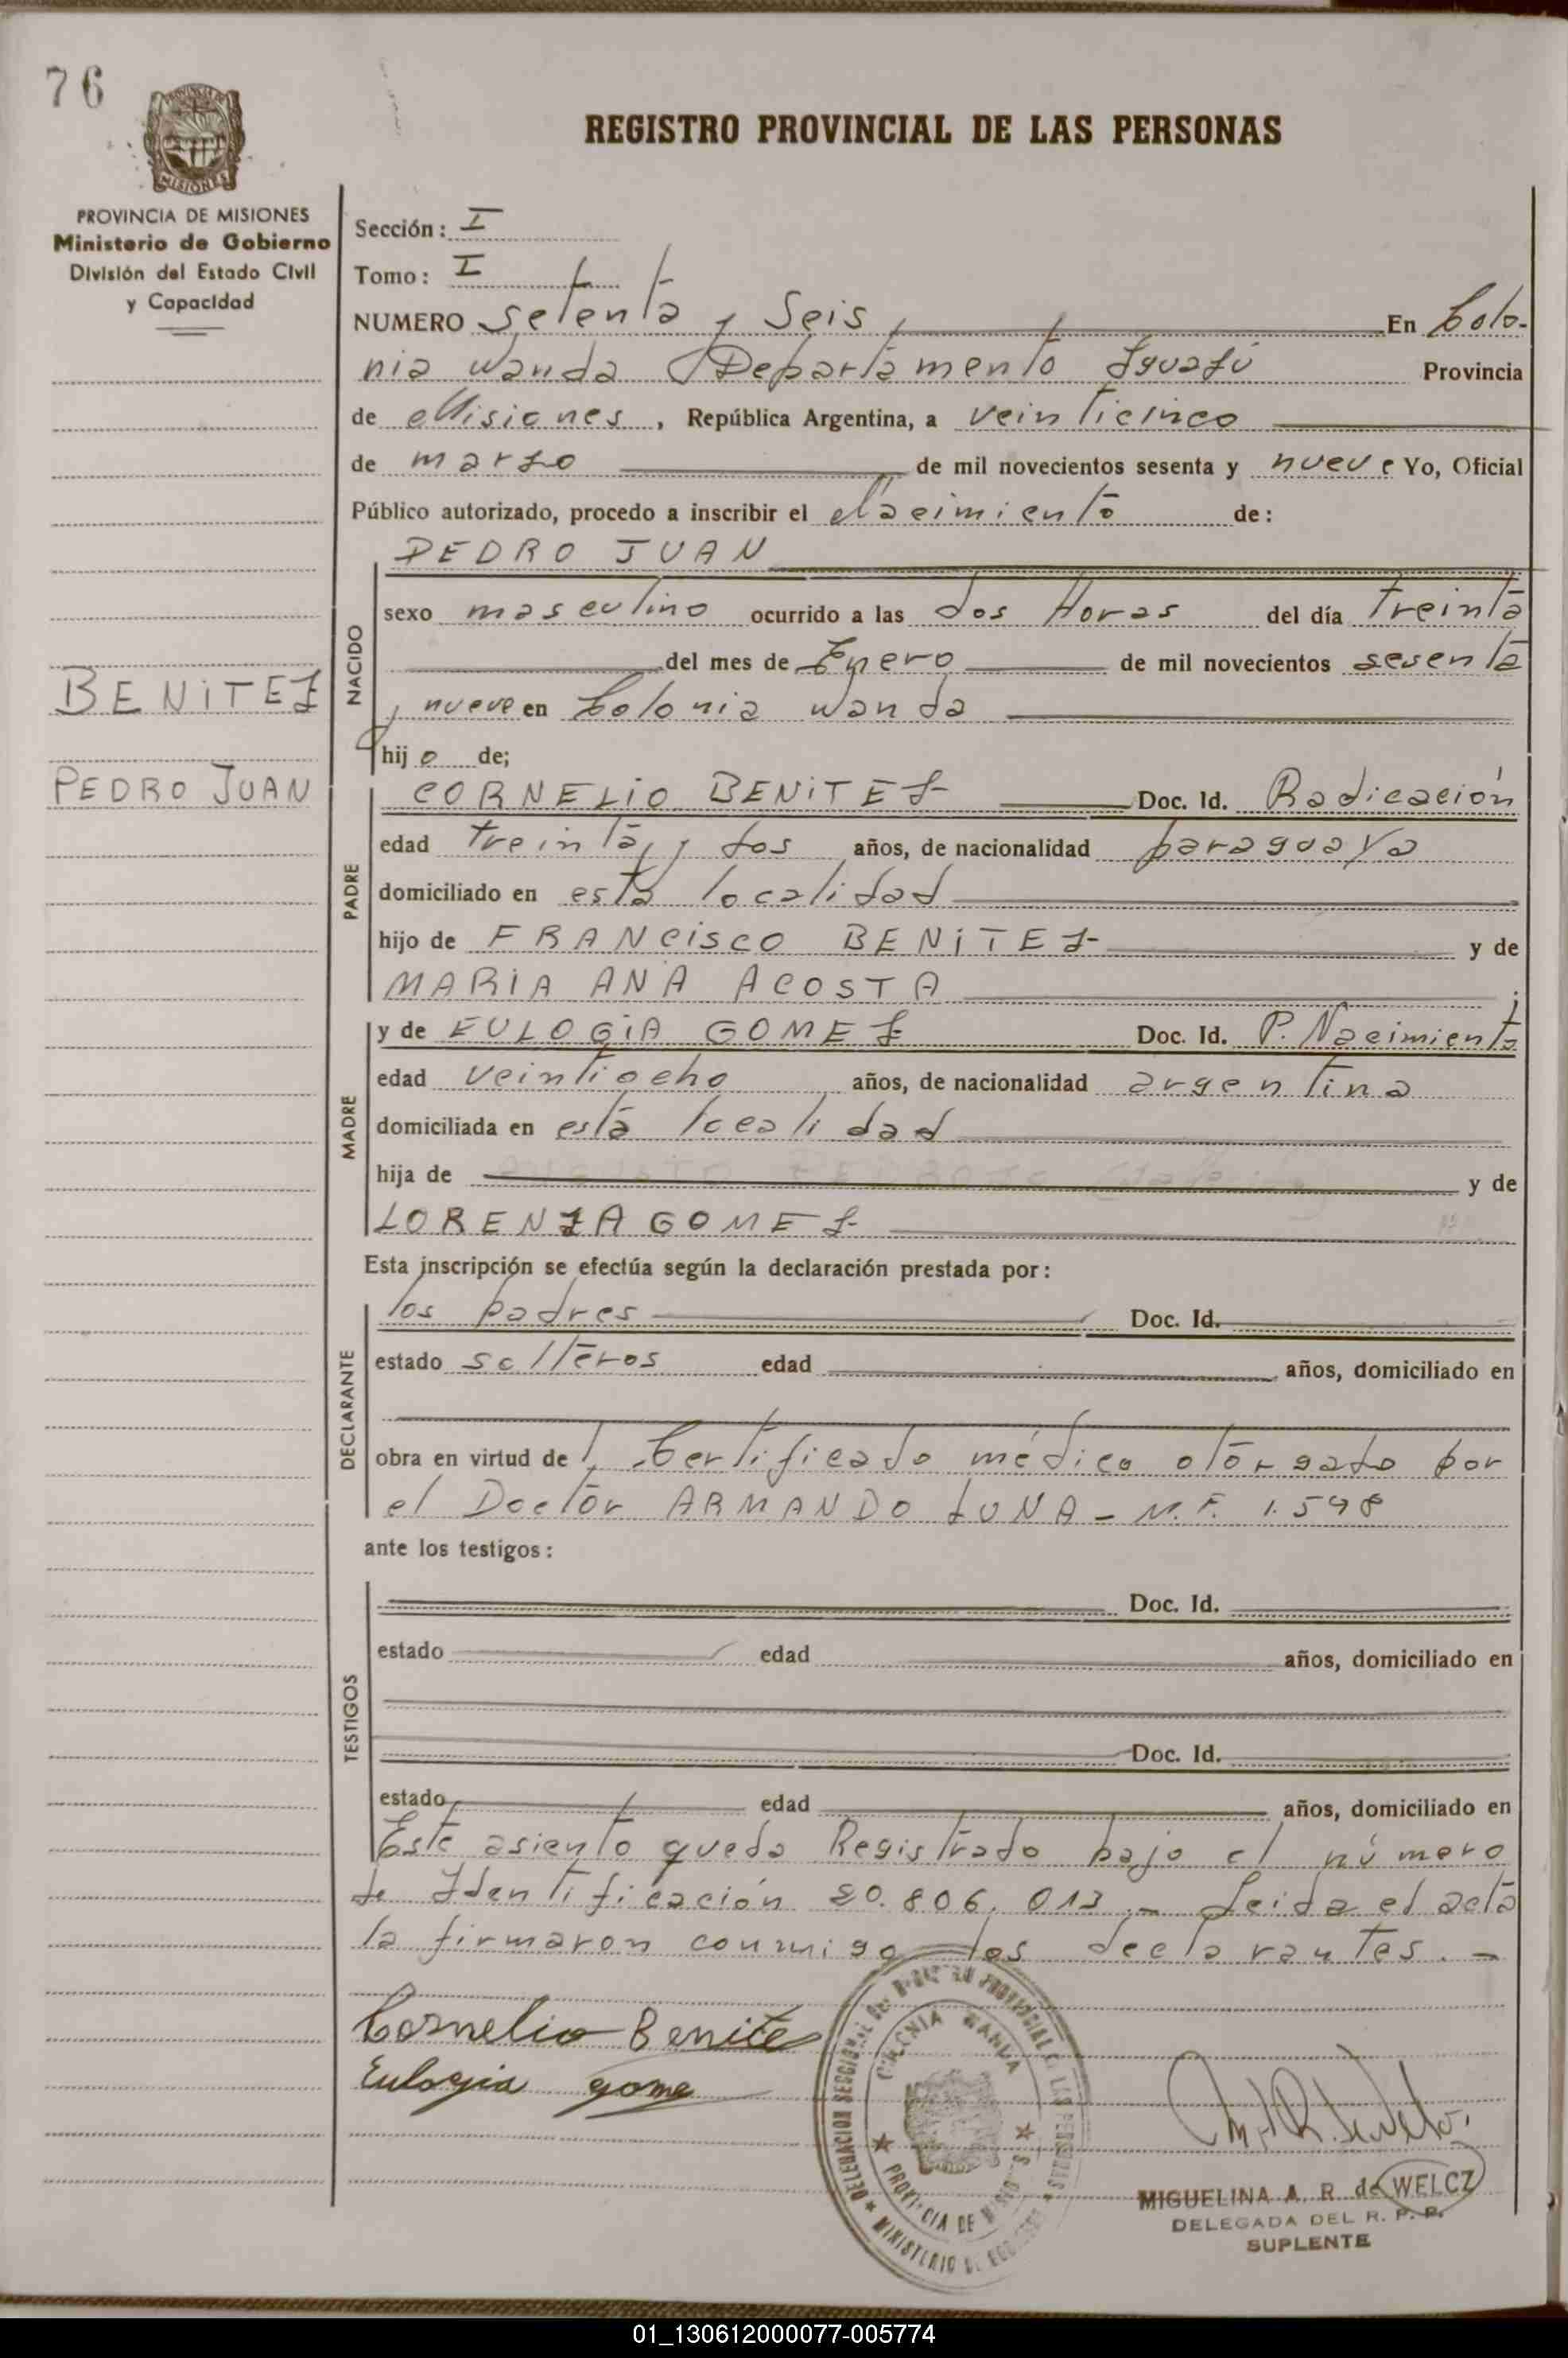 76
REGISTRO PROVINCIAL DE LAS PERSONAS
MISIONES
PROVINCIA DE MISIONES
Ministerio de Gobierno
División del Estado Civil
y Capacidad
Sección: I
Tomo: I
NUMERO Setenta y Seis, En Colo-
nia Wanda Departamento Iguazú Provincia
de Misiones, República Argentina, a veinticinco
de marzo de mil novecientos sesenta y nueve Yo, Oficial
Público autorizado, procedo a inscribir el Nacimiento de:
BENITEZ
PEDRO JUAN
NACIDO
PEDRO JUAN
sexo masculino ocurrido a las dos Horas del día treinta
del mes de Enero de mil novecientos sesenta
y nueve en Colonia Wanda
hijo de;
PADRE
CORNELIO BENITEZ Doc. Id. Radicación
edad treinta y dos años, de nacionalidad paraguaya
domiciliado en esta localidad
hijo de FRANCISCO BENITEZ y de
MARIA ANA ACOSTA ;
MADRE
y de EULOGIA GOMEZ Doc. Id. P. Nacimiento
edad veintiocho años, de nacionalidad argentina
domiciliada en esta localidad
hija de y de
LORENZA GOMEZ
Esta inscripción se efectúa según la declaración prestada por:
DECLARANTE
los padres Doc. Id.
estado solteros edad años, domiciliado en
obra en virtud de Certificado médico otorgado por
el Doctor ARMANDO LUNA - M.F. 1.548
ante los testigos:
TESTIGOS
Doc. Id.
estado edad años, domiciliado en
Doc. Id.
estado edad años, domiciliado en
Este asiento queda Registrado bajo el número
de Identificación 20.806.013.- Leida el acta
la firmaron conmigo los declarantes.-
Cornelio Benite
Eulogia gome
DELEGACION SECCIONAL DEL REGISTRO PROVINCIAL DE LAS PERSONAS
COLONIA WANDA
PROVINCIA DE MISIONES
MINISTERIO DE GOBIERNO
MIGUELINA A. R. de WELCZ
DELEGADA DEL R. P. P.
SUPLENTE
01_130612000077-005774